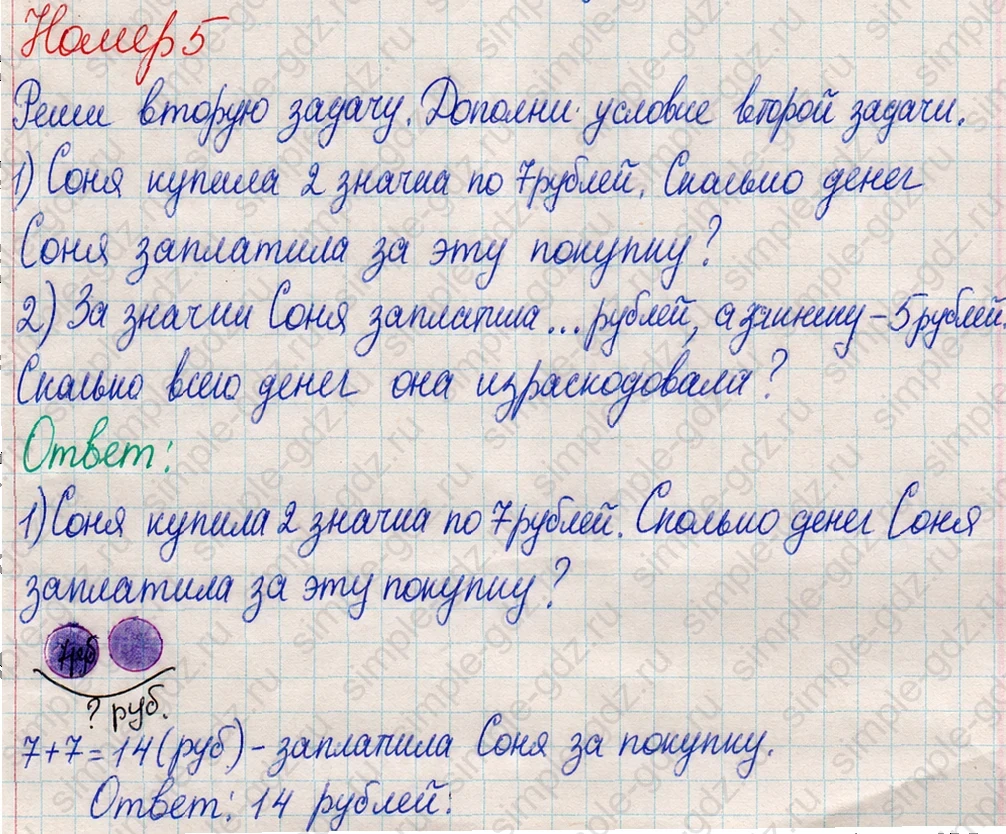 Номер 5
Реши вторую задачу. Дополни условие второй задачи.
1) Соня купила 2 значка по 7 рублей. Сколько денег
Соня заплатила за эту покупку?
2) За значки Соня заплатила ... рублей, а за книжку – 5 рублей
Сколько всего денег она израсходовала?
Ответ:
1) Соня купила 2 значка по 7 рублей. Сколько денег Соня
заплатила за эту покупку?
7 руб
? руб.
7+7=14(руб) - заплатила Соня за покупку.
Ответ: 14 рублей.
simple-gdz.ru